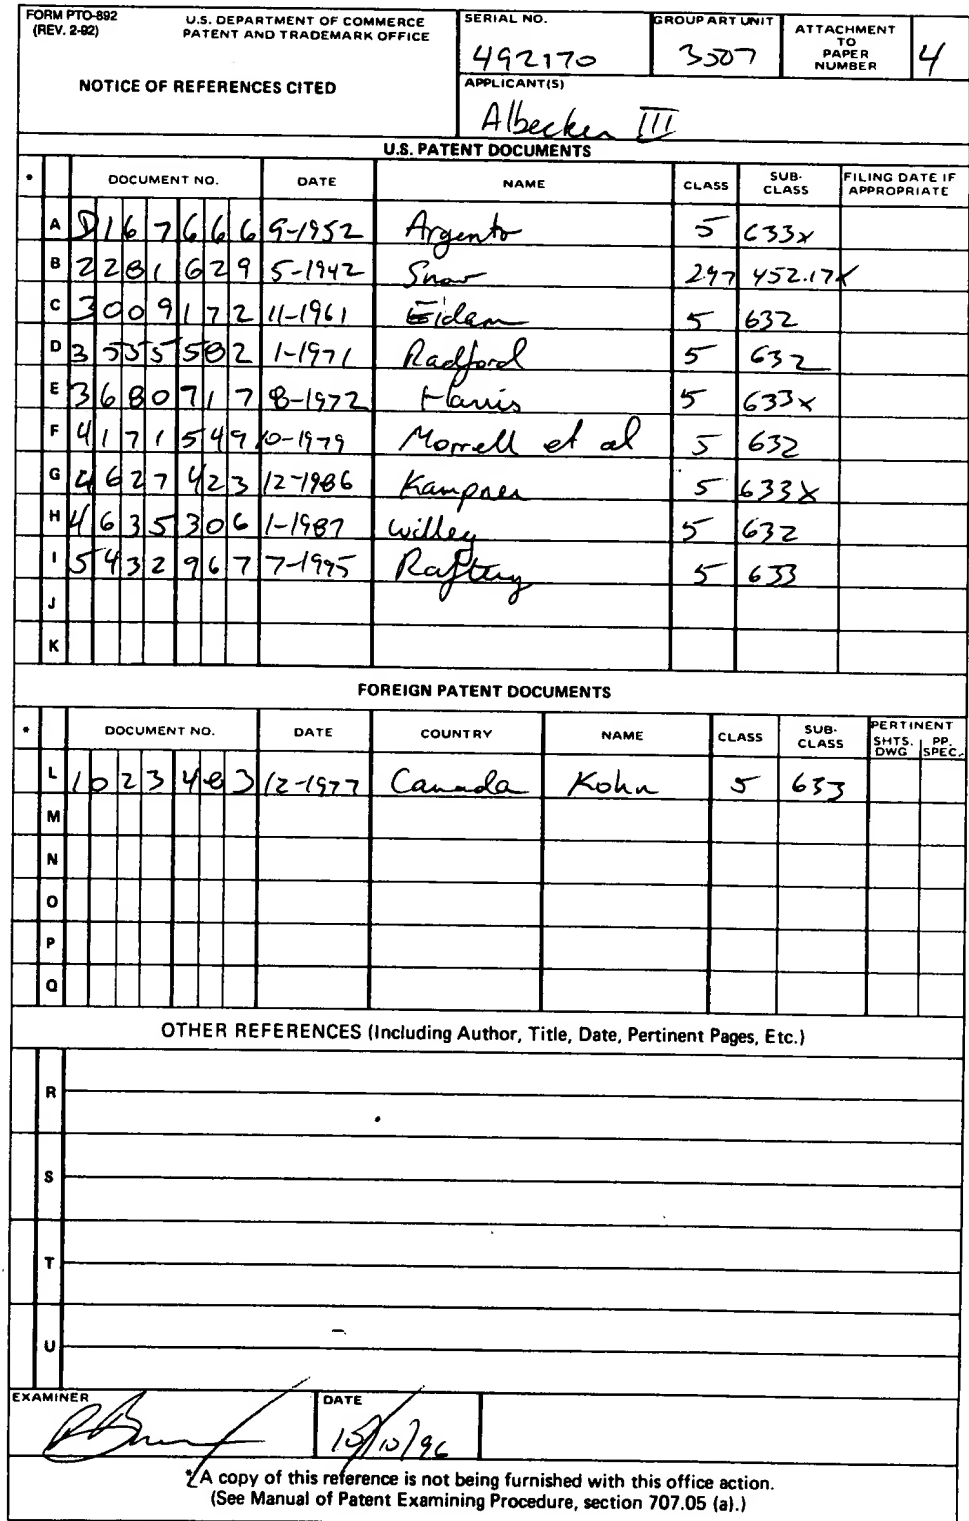 FORM PTO-892
(REV. 2-92)
U.S. DEPARTMENT OF COMMERCE
PATENT AND TRADEMARK OFFICE
NOTICE OF REFERENCES CITED
SERIAL NO.
492170
GROUP ART UNIT
3507
ATTACHMENT
TO
PAPER
NUMBER
4
APPLICANT(S)
Albecker III
U.S. PATENT DOCUMENTS
* DOCUMENT NO. DATE NAME CLASS SUB-CLASS FILING DATE IF APPROPRIATE
A D167666 9-1952 Argento 5 633x
B 2281629 5-1942 Snow 297 452.17x
C 3009172 11-1961 Eidam 5 632
D 3555582 1-1971 Radford 5 632
E 3680717 8-1972 Harris 5 633x
F 4171549 10-1979 Morrell et al 5 632
G 4627423 12-1986 Kampner 5 633x
H 4635306 1-1987 Willey 5 632
I 5432967 7-1995 Raftery 5 633
J
K
FOREIGN PATENT DOCUMENTS
* DOCUMENT NO. DATE COUNTRY NAME CLASS SUB-CLASS PERTINENT SHTS. DWG PP. SPEC.
L 1023483 12-1977 Canada Kohn 5 633
M
N
O
P
Q
OTHER REFERENCES (Including Author, Title, Date, Pertinent Pages, Etc.)
R
S
T
U
EXAMINER
DATE
10/10/96
* A copy of this reference is not being furnished with this office action.
(See Manual of Patent Examining Procedure, section 707.05 (a).)